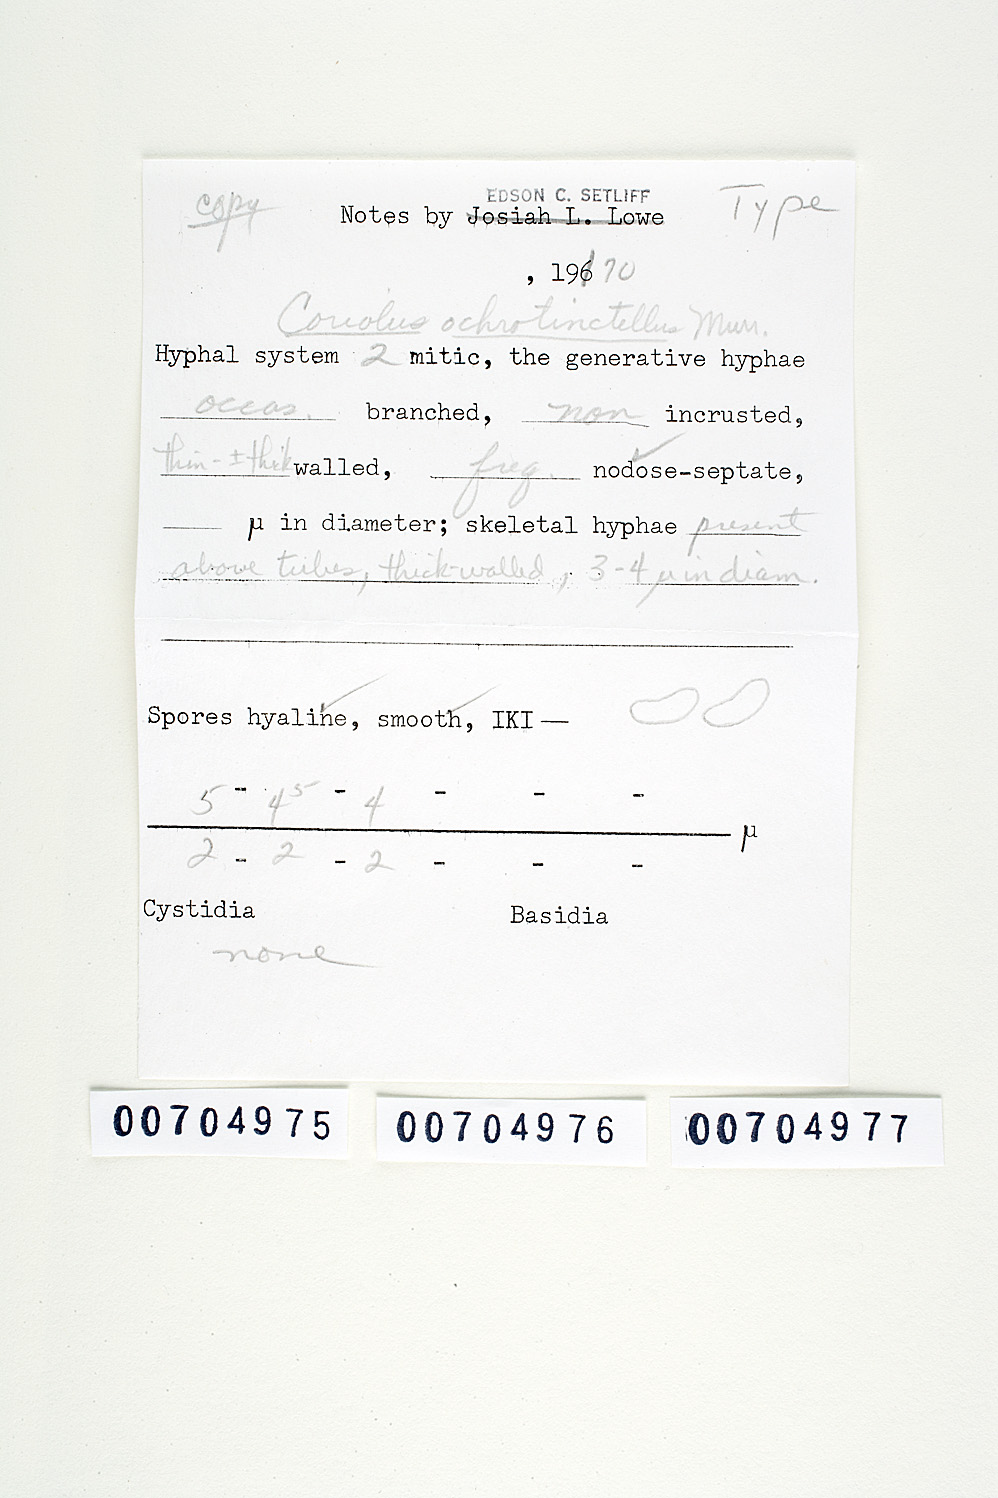 copy
EDSON C. SETLIFF
Type
Notes by Josiah L. Lowe
, 196 70
Coriolus ochrotinctellus Murr.
Hyphal system 2 mitic, the generative hyphae
occas. branched, non incrusted,
thin-±thick walled, freq. nodose-septate,
µ in diameter; skeletal hyphae present
above tubes, thick-walled, 3-4 µ in diam.
Spores hyaline, smooth, IKI —
5 - 4⁵ - 4 - - -
µ
2 - 2 - 2 - - -
Cystidia Basidia
none
00704975 00704976 00704977